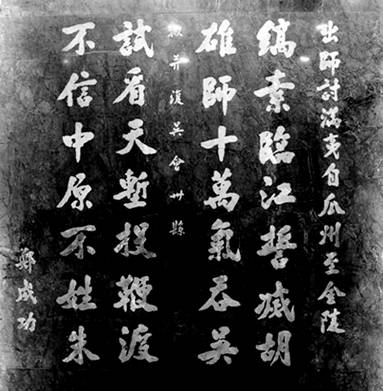 出師討滿夷自瓜州至金陵
縞素臨江誓滅胡
雄師十萬氣吞吳
并復吳會縣
試看天塹投鞭渡
不信中原不姓朱
鄭成功